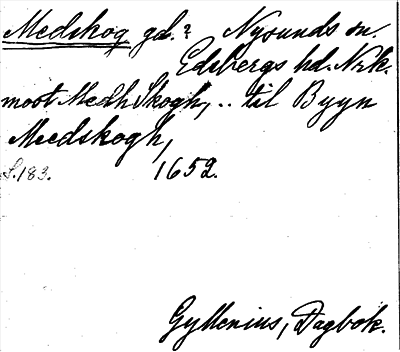 Medskog gd.? Nysunds sn.
Edsbergs hd. Nrk.
moot MedhSkogh, .. til Byyn
Meedskogh,
S. 183. 1652.
Gyllenius, Dagbok.